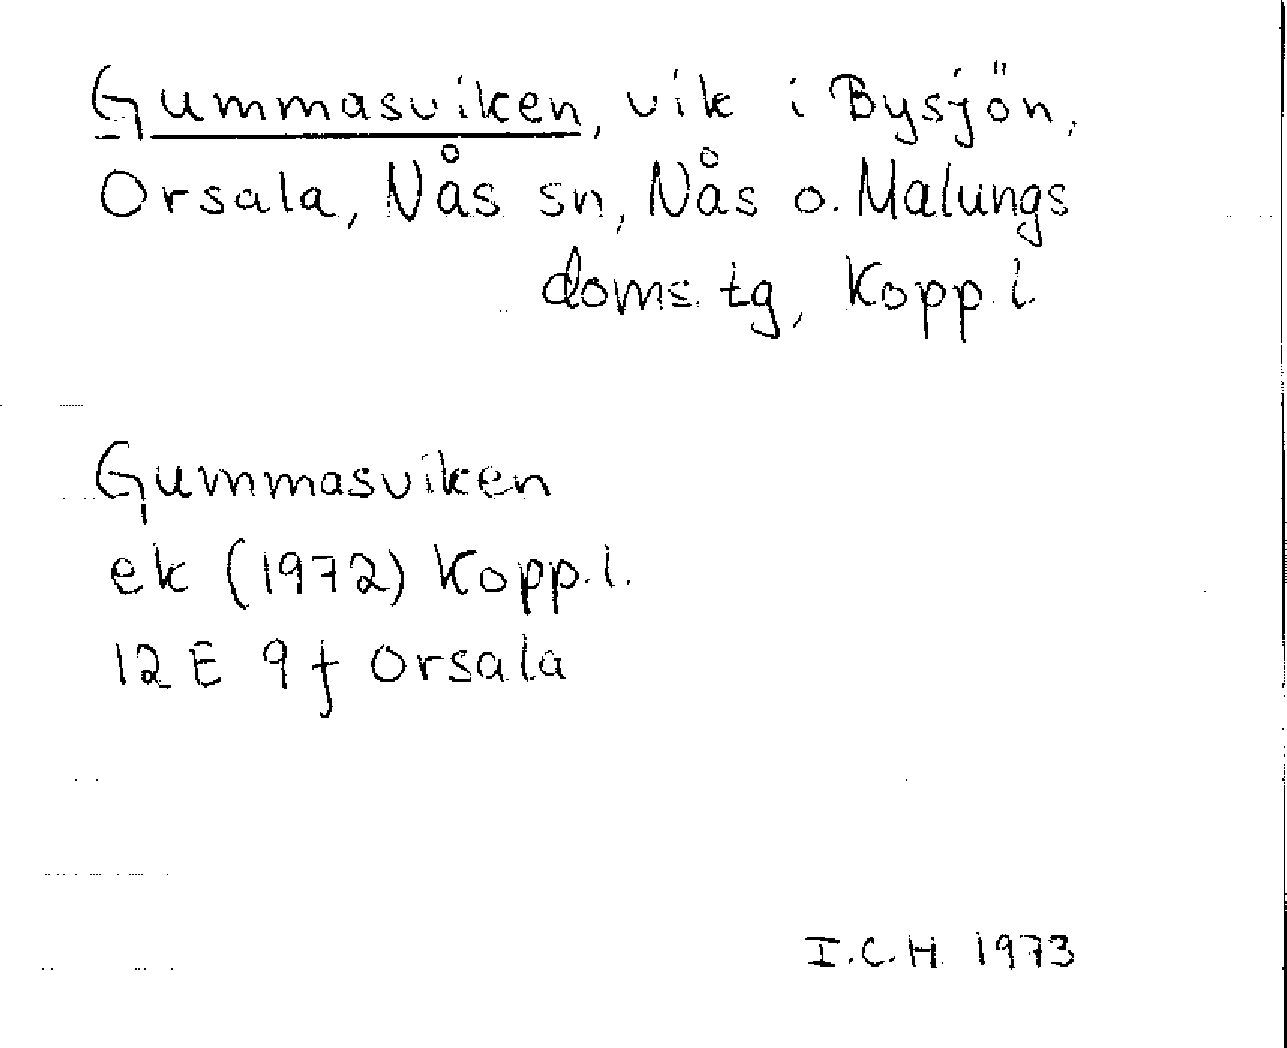 Gummasviken, vik i Bysjön,
Orsala, Nås sn, Nås o. Malungs
doms. tg, Kopp. l.
Gummasviken
ek (1972) Kopp. l.
12 E 9 f Orsala
I.C.H. 1973